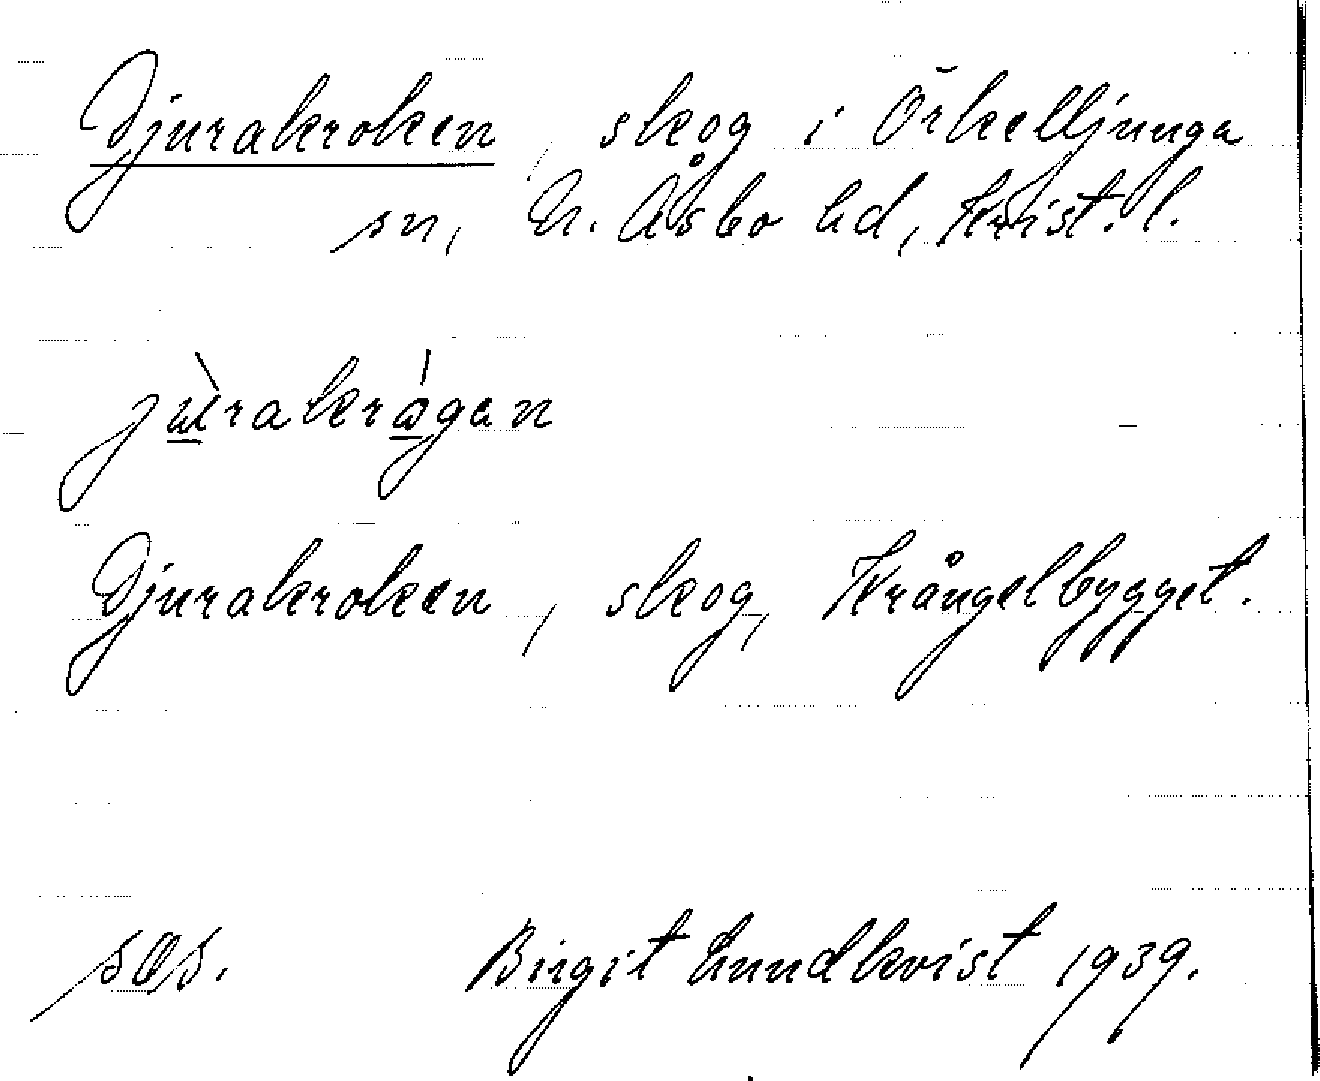 Djurakroken, skog i Örkelljunga
sn, N. Åsbo hd, Krist. l.
jùrakrågan
Djurakroken, skog, Krångelbygget.
Birgit Lundkvist 1939.